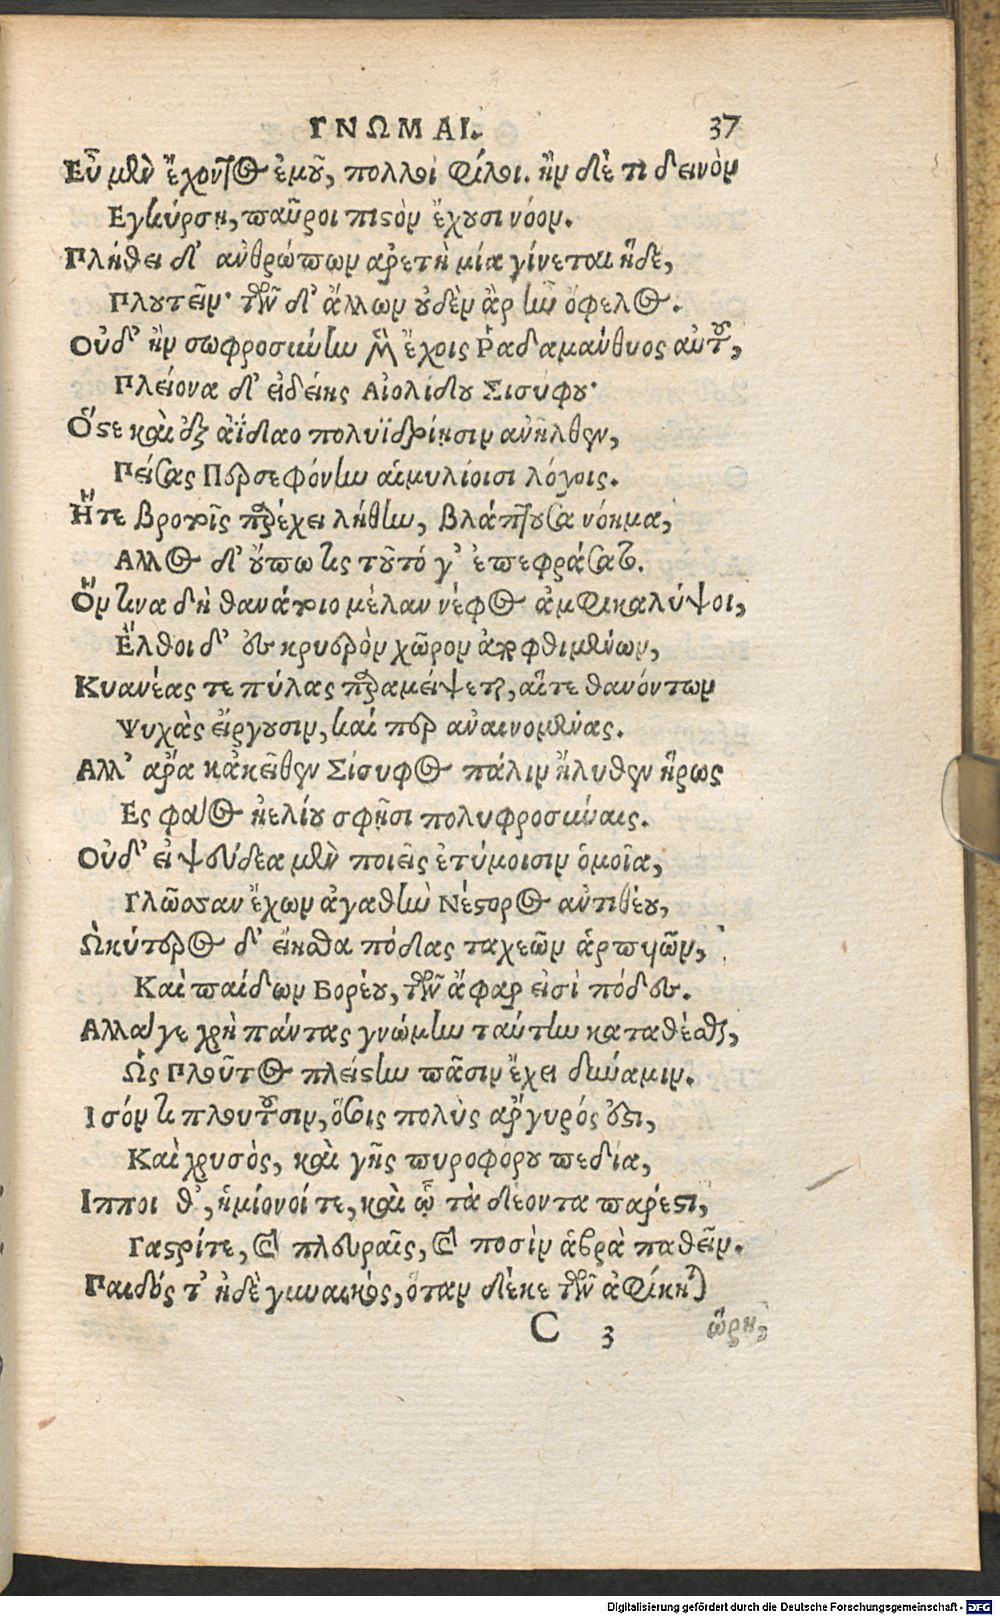 ΓΝΩΜΑΙ. 37
Εὖ μὲν ἔχοντος ἐμοῦ, πολλοὶ φίλοι. ἢν δέ τι δεινὸν
Εγκύρσῃ, παῦροι πιστὸν ἔχουσι νόον.
Πλήθει δ' ἀνθρώπων ἀρετὴ μία γίνεται ἥδε,
Πλουτεῖν· τῶν δ' ἄλλων οὐδὲν ἂρ ἦν ὄφελος.
Οὐδ' ἢν σωφροσύνην μὲν ἔχοις Ῥαδαμάνθυος αὐτοῦ,
Πλείονα δ' εἰδείης Αἰολίδου Σισύφου·
Ὅστε καὶ ἐξ ἀΐδαο πολυϊδρίῃσιν ἀνῆλθεν,
Πείσας Περσεφόνην αἱμυλίοισι λόγοις.
Ἥτε βροτοῖς παρέχει λήθην, βλάπτουσα νόημα,
Αλλος δ' οὔπω τις τοῦτό γ' ἐπεφράσατο.
Ὅν τινα δὴ θανάτοιο μέλαν νέφος ἀμφικαλύψοι,
Ἔλθοι δ' ἐς κρυερὸν χῶρον ἀποφθιμένων,
Κυανέας τε πύλας παραμείψεται, αἵτε θανόντων
Ψυχὰς εἴργουσιν, καί περ ἀναινομένας.
Αλλ' ἄρα κἀκεῖθεν Σίσυφος πάλιν ἤλυθεν ἥρως
Ες φάος ἠελίου σφῇσι πολυφροσύναις.
Οὐδ' εἰ ψεύδεα μὲν ποιεῖς ἐτύμοισιν ὁμοῖα,
Γλῶσσαν ἔχων ἀγαθὴν Νέστορος ἀντιθέου,
Ὠκύτερος δ' εἴησθα πόδας ταχεῶν ἁρπυιῶν,
Καὶ παίδων Βορέου, τῶν ἄφαρ εἰσὶ πόδες.
Αλλά γε χρὴ πάντας γνώμην ταύτην καταθέσθαι,
Ὡς Πλοῦτος πλείστην πᾶσιν ἔχει δύναμιν.
Ισόν τι πλουτοῦσιν, ὅστις πολὺς ἄργυρός ἐστι,
Καὶ χρυσὸς, καὶ γῆς πυροφόρου πεδία,
Ιπποι θ', ἡμίονοί τε, καὶ ᾧ τὰ δέοντα πάρεστι,
Γαστρί τε, καὶ πλευραῖς, καὶ ποσὶν ἁβρὰ παθεῖν.
Παιδός τ' ἠδὲ γυναικὸς, ὅταν δέ κε τῶν ἀφίκηται
C 3 ὥρη,
Digitalisierung gefördert durch die Deutsche Forschungsgemeinschaft - DFG